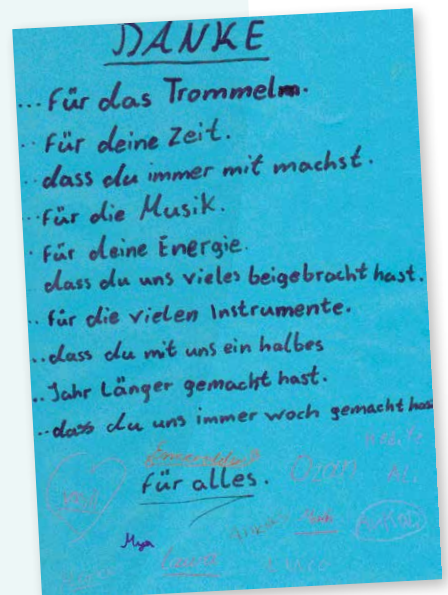 DANKE
... Für das Trommelm.
.. Für deine Zeit.
.. dass du immer mit machst.
.. Für die Musik.
. Für deine Energie.
dass du uns vieles beigebracht hast.
.. für die vielen Instrumente.
.. dass du mit uns ein halbes
.. Jahr Länger gemacht hast.
.. dass du uns immer woch gemacht has
für alles.
Ozan